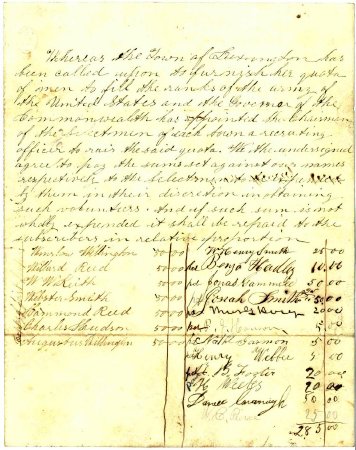 Whereas the Town of Lexington has
been called upon to furnish her quota
of men to fill the ranks of the army of
the United States and the Governor of the
Commonwealth has appointed the Chairman
of the Selectmen of each town a recruiting
officer to rais the said quota. We the undersigned
agree to pay the sums set against our names
respectively to the Selectmen to be used
by them in their discretion in obtaining
such volunteers. And if such sum is not
wholly expended it shall be repaid to the
subscribers in relative proportion
Winslow Wellington 50 00
Willard Reed 50 00
W W Keith 50 00
Webster Smith 50 00
Hammond Reed 50 00
Charles Hudson 50 00
Augustus Wellington 50 00
W Henry Smith 25 00
Benj Hadley 10.00
Jonas Gammell 50 00
Josiah Smith 50 00
20 00
5 00
Nath Harmon 5 00
Henry Webbe 5 00
20 00
20 00
Daniel Cavanagh 50 00
25 00
285 00